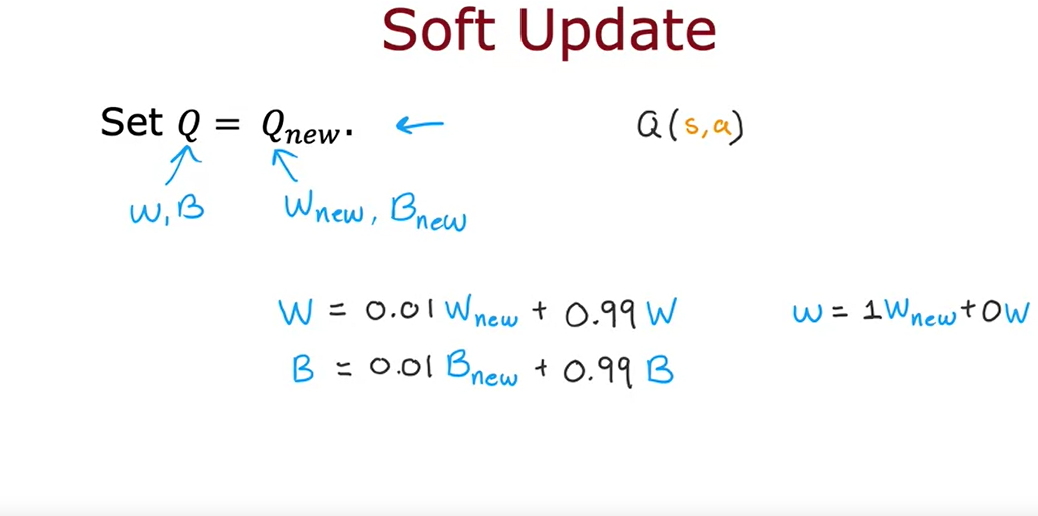 Soft Update
Set Q = Qnew. ← Q(s,a)
W,B Wnew, Bnew
W = 0.01 Wnew + 0.99 W w = 1Wnew+0W
B = 0.01 Bnew + 0.99 B